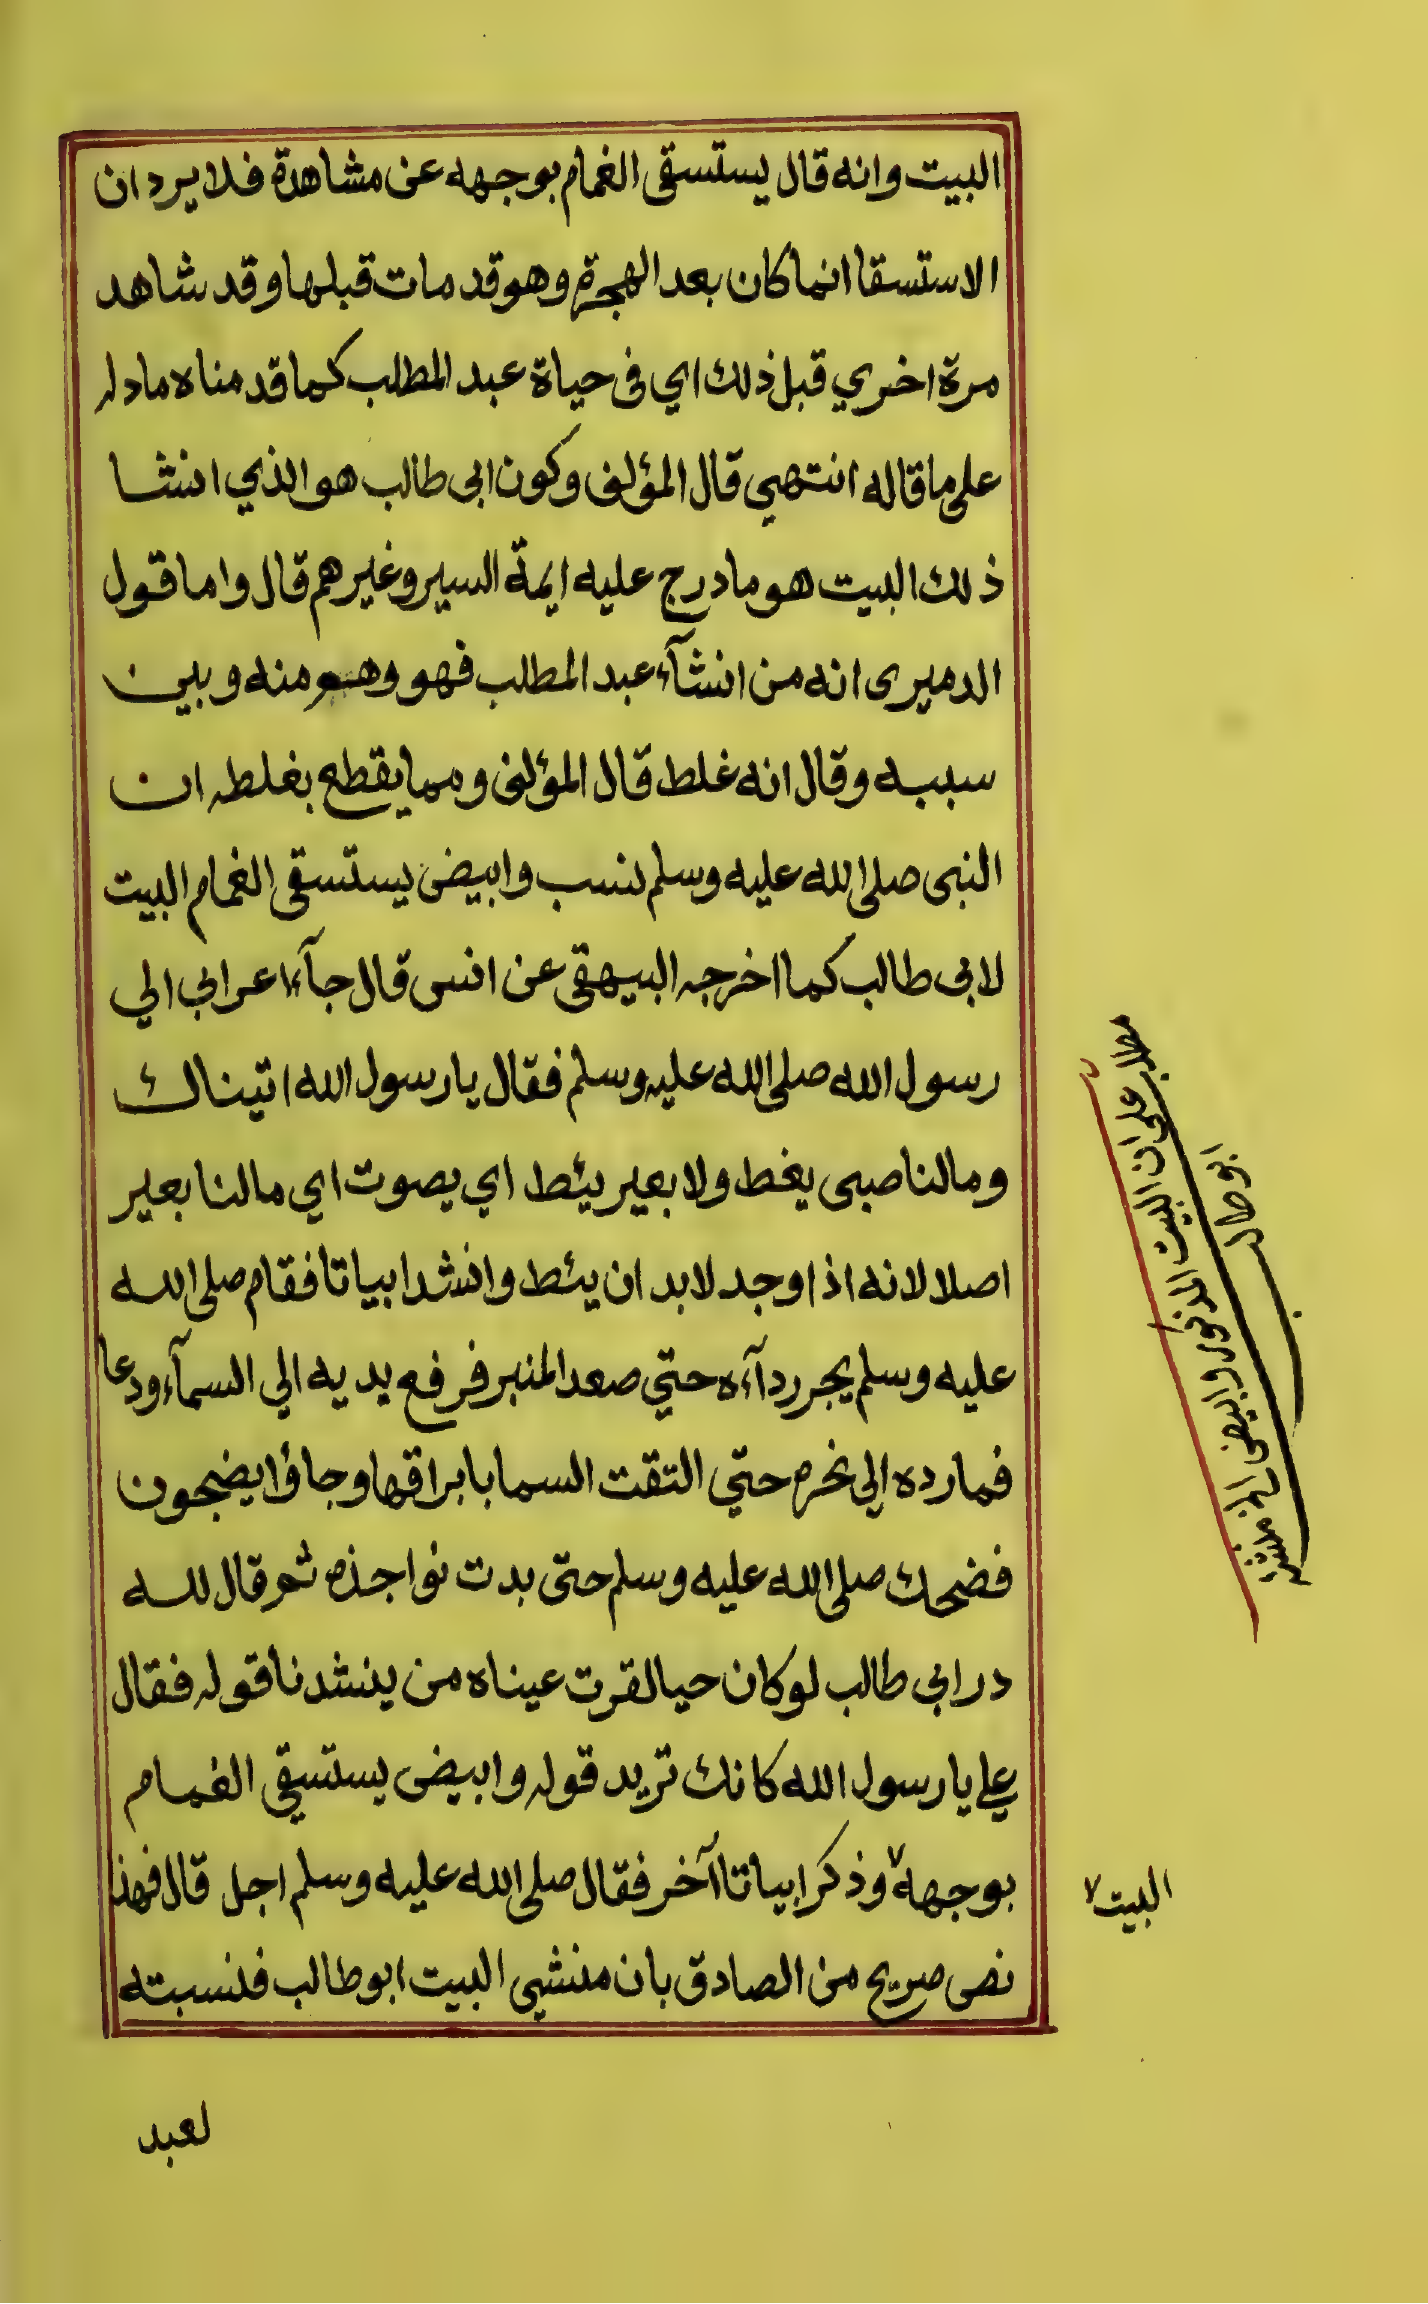 البيت وانه قال يستسقى الغمام بوجهه عن مشاهدة فلا يرد ان
الاستسقا انما كان بعد الهجرة وهو قد مات قبلها وقد شاهد
مرة اخري قبل ذلك اي فى حياة عبد المطلب كما قدمناه ما دله
على ما قاله انتهي قال المؤلف وكون ابى طالب هو الذي انشا
ذلك البيت هو ما درج عليه ايمة السير وغيرهم قال واما قول
الدميرى انه من انشآء عبد المطلب فهو وهم منه وبين
سببه وقال انه غلط قال المؤلف ومما يقطع بغلطه ان
النبى صلى الله عليه وسلم نسب وابيض يستسقى الغمام البيت
لابى طالب كما اخرجه البيهقى عن انس قال جآء اعرابي الي
رسول الله صلى الله عليه وسلم فقال يا رسول الله اتيناك
ومالنا صبى يغط ولا بعير يئط اي يصوت اي مالنا بعير
اصلا لانه اذا وجد لا بد ان يئط وانشد ابياتا فقام صلى الله
عليه وسلم يجر ردآءه حتي صعد المنبر فرفع يديه الي السمآء ودعا
فما رده الى نحره حتي التقت السما بابراقها وجاؤا يضجون
فضحك صلى الله عليه وسلم حتى بدت نواجذه ثم قال لله
در ابي طالب لو كان حيا لقرت عيناه من ينشدنا قوله فقال
علي يا رسول الله كانك تريد قوله وابيض يستسقي الغمام
بوجهه٧ وذكر ابياتا آخر فقال صلى الله عليه وسلم اجل قال فهذا
نص صريح من الصادق بان منشي البيت ابو طالب فنسبته
لعبد
مطلب على ان البيت المذكور وابيض الخ منشه
ابو طالب
البيت٧